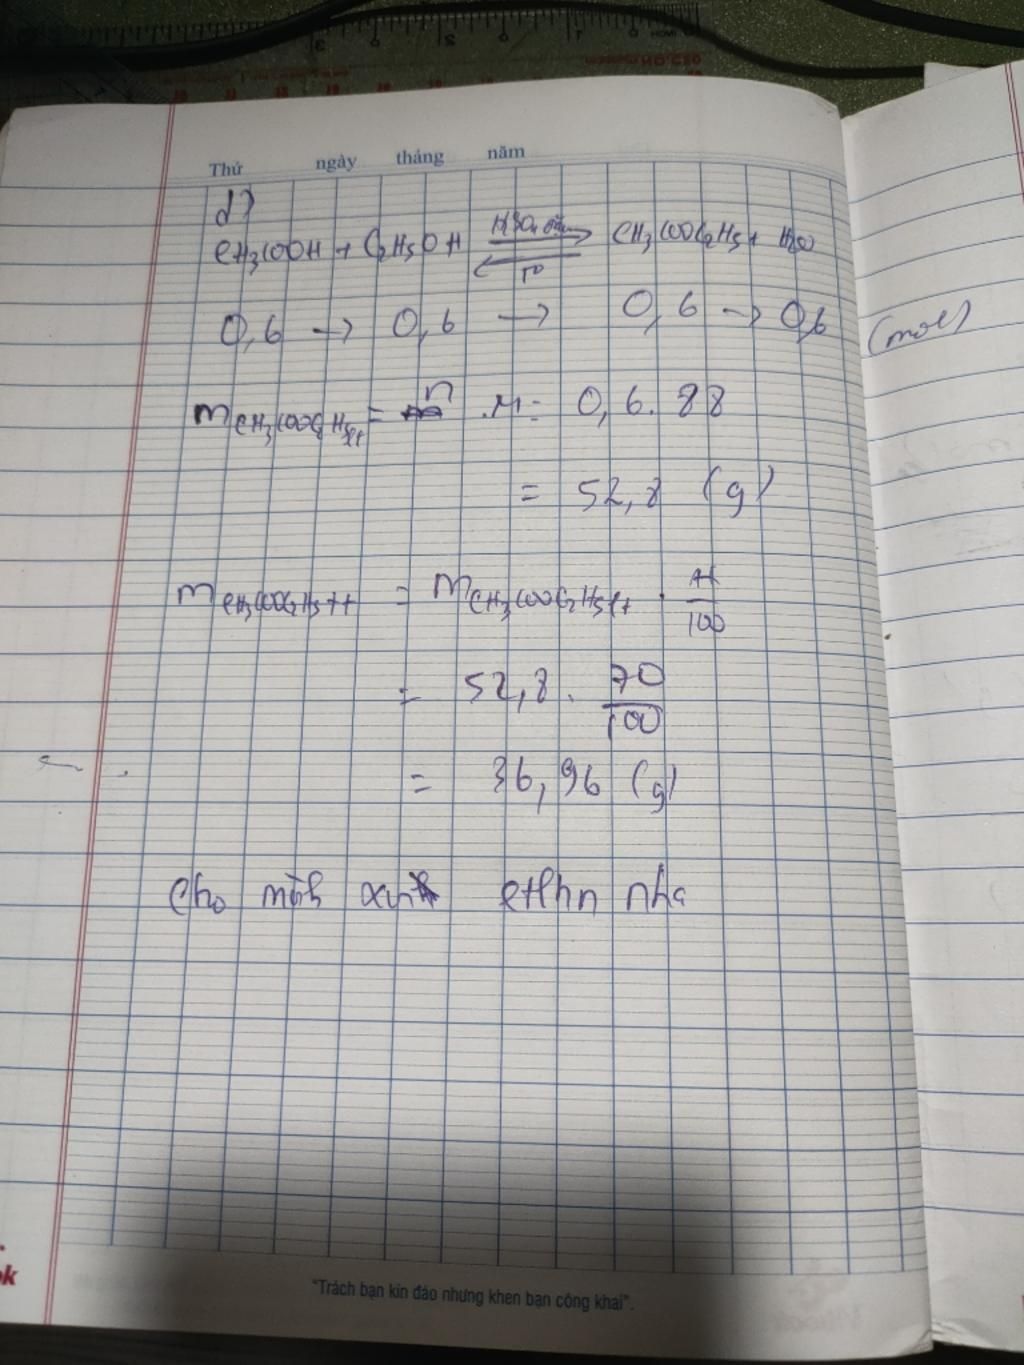 Thứ ngày tháng năm
d)
CH3COOH + C2H5OH H2SO4 đặc to CH3COOC2H5 + H2O
0,6 → 0,6 → 0,6 → 0,6 (mol)
mCH3COOC2H5lt = n . M = 0,6 . 88
= 52,8 (g)
mCH3COOC2H5tt = mCH3COOC2H5lt . H/100
= 52,8 . 70/100
= 36,96 (g)
Cho mình xin nha
"Trách bạn kín đáo nhưng khen bạn công khai".